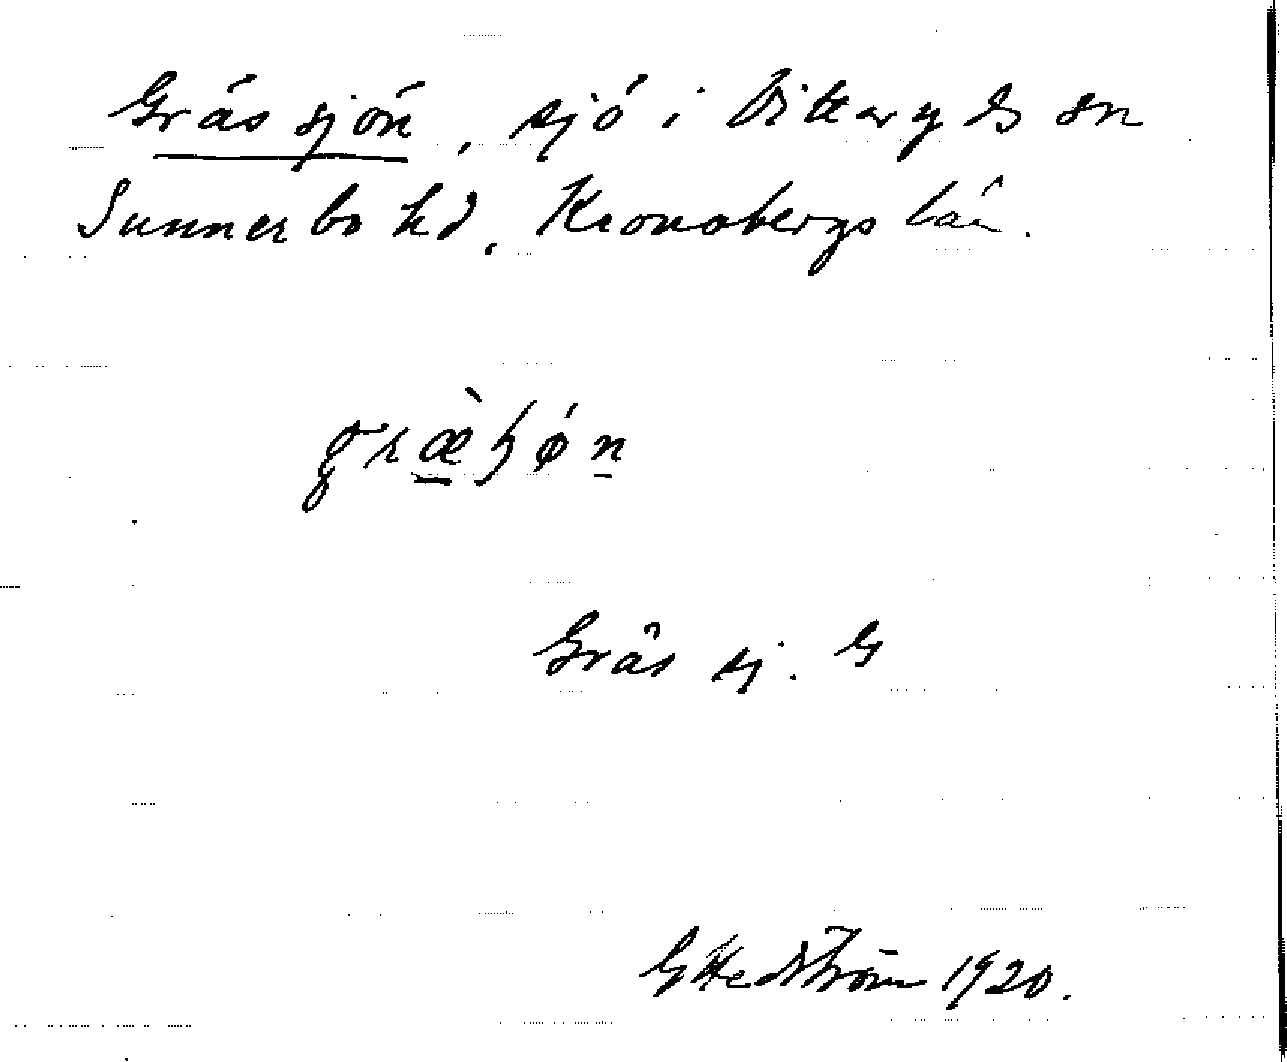 Gräs sjön, sjö i Vittaryds sn
Sunnerbo hd, Kronobergs län.
græ̀ɧøn
Gräs sj. G
G Hedström 1920.